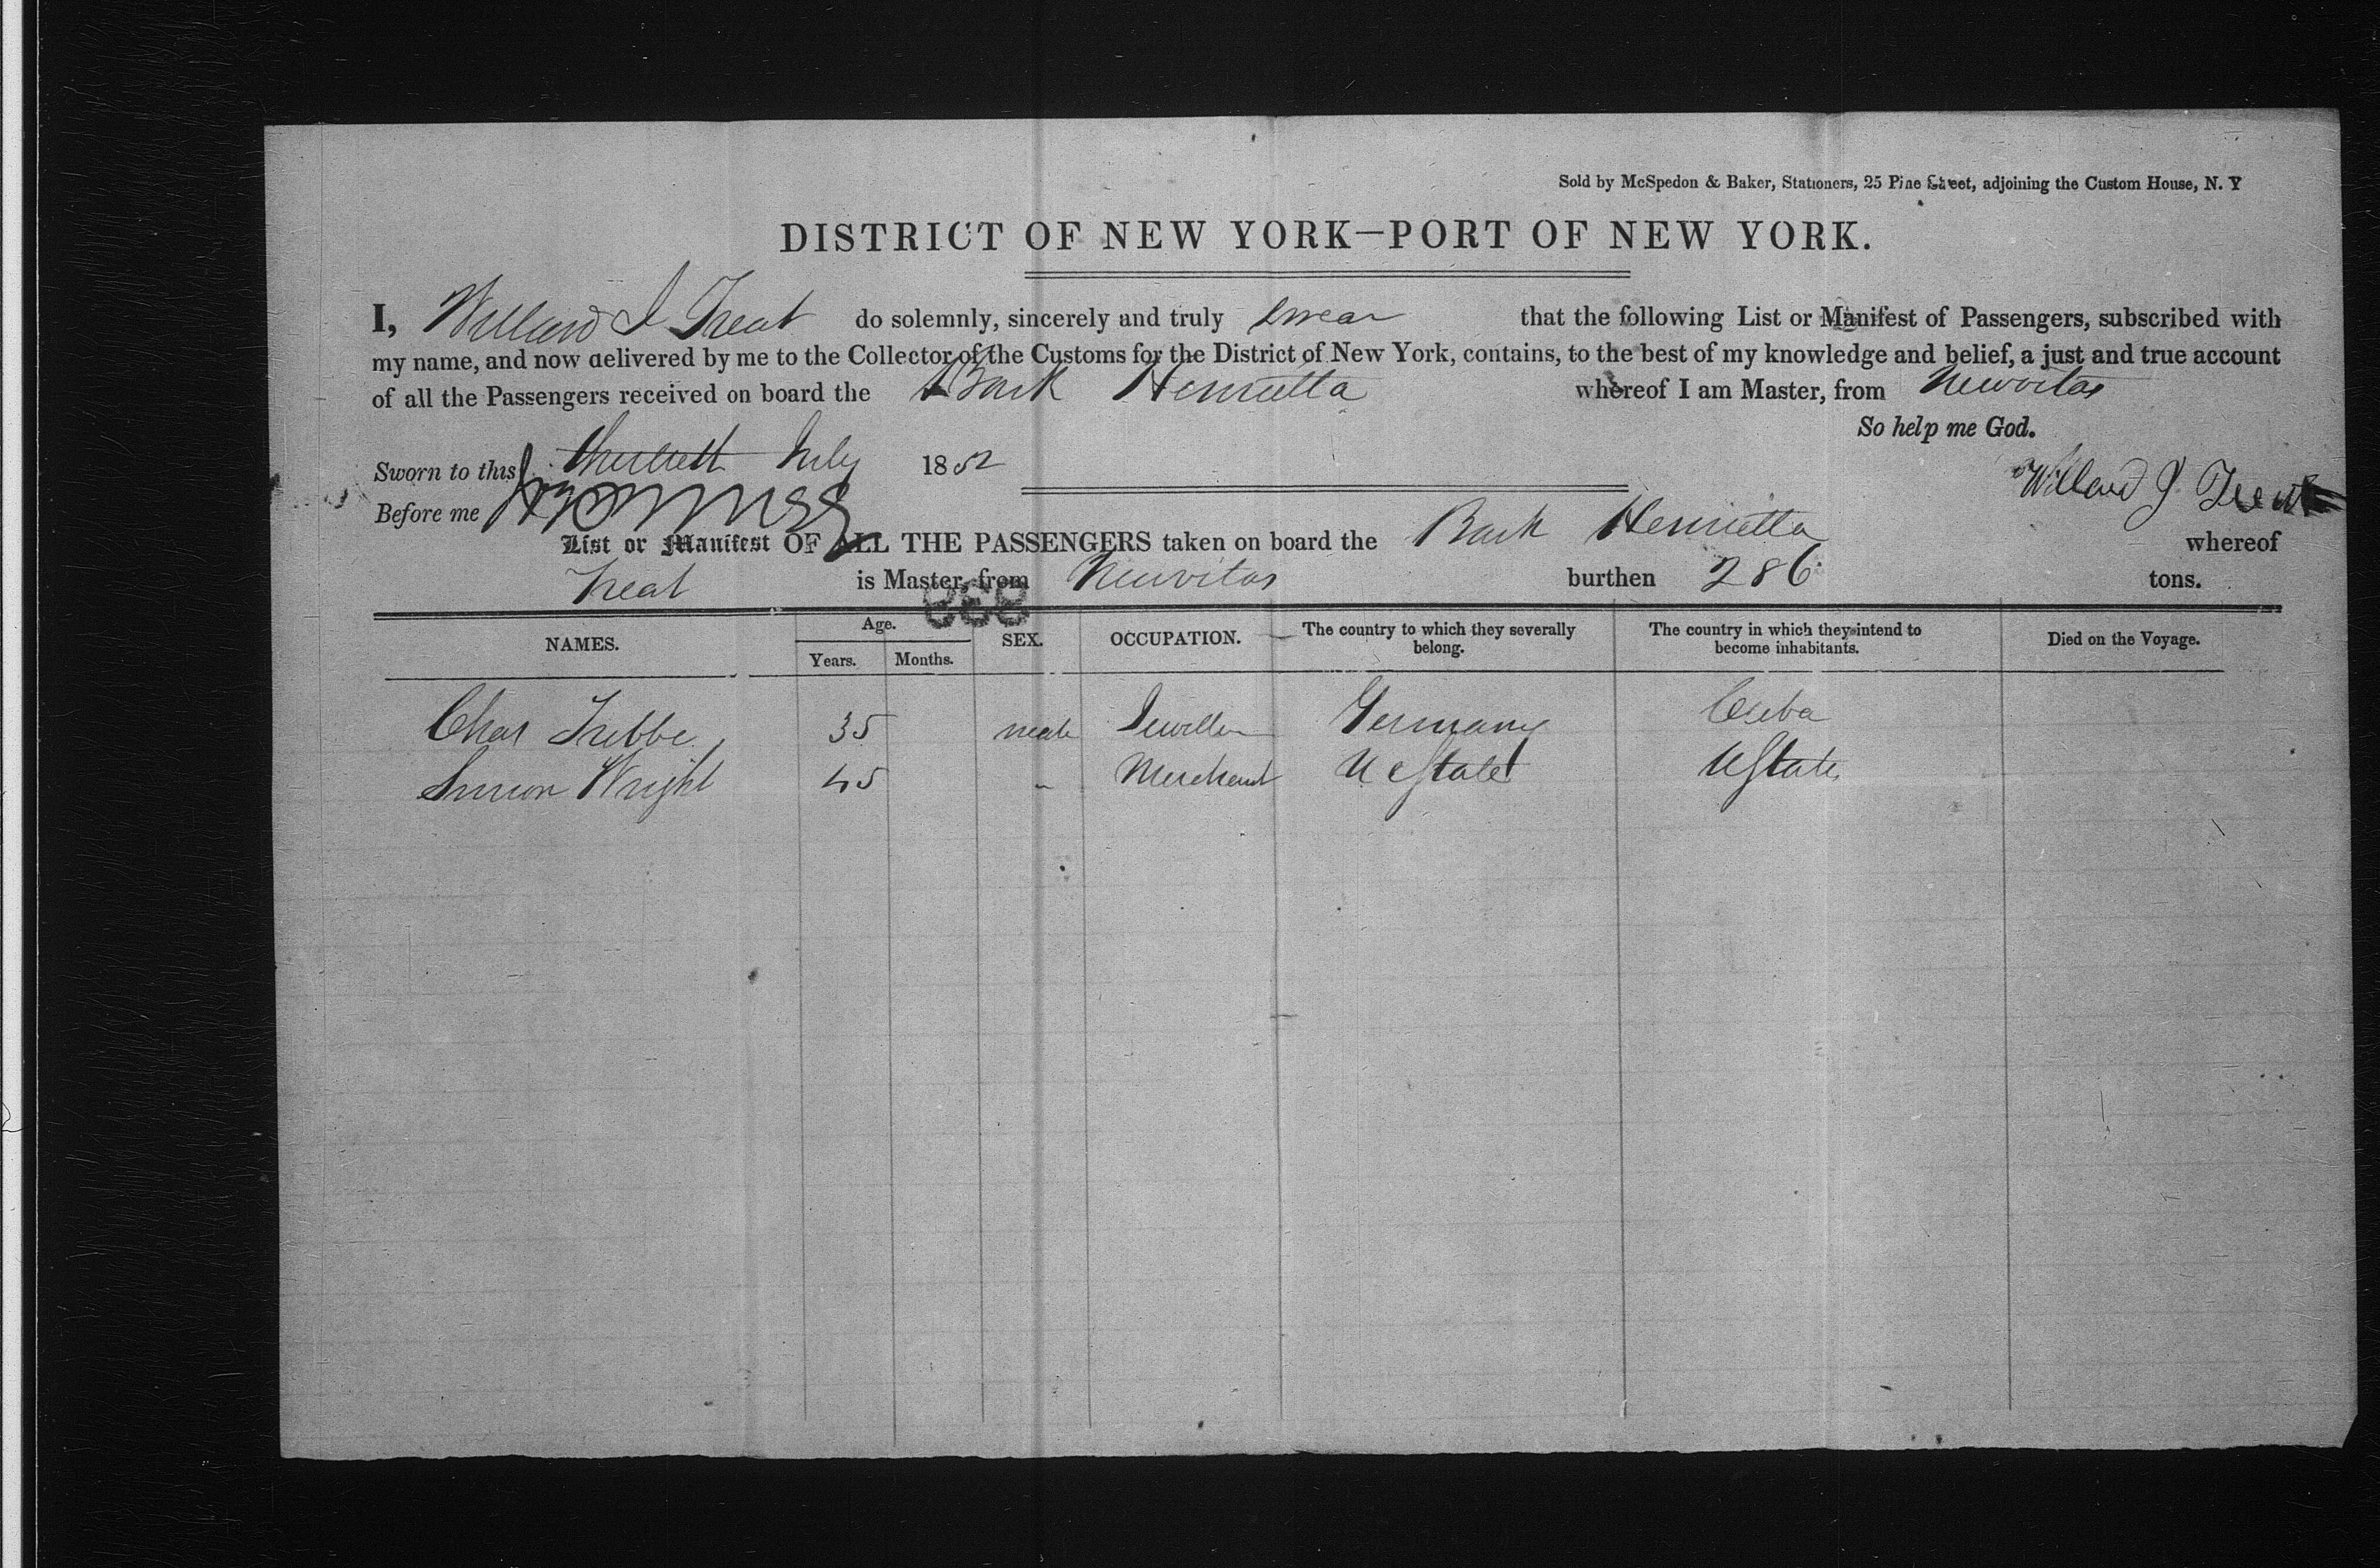 Sold by McSpedon & Baker, Stationers, 25 Pine Street, adjoining the Custom House, N. Y
DISTRICT OF NEW YORK—PORT OF NEW YORK.
I, Willard J Treat do solemnly, sincerely and truly swear that the following List or Manifest of Passengers, subscribed with
my name, and now delivered by me to the Collector of the Customs for the District of New York, contains, to the best of my knowledge and belief, a just and true account
of all the Passengers received on board the Bark Henrietta whereof I am Master, from Neuvitas
So help me God.
Sworn to this July 1852
Willard J. Treat
Before me
List or Manifest OF ALL THE PASSENGERS taken on board the Bark Henrietta whereof
Treat is Master, from Neuvitas burthen 286 tons.
939
NAMES. Age. Years. Months. SEX. OCCUPATION. The country to which they severally belong. The country in which they intend to become inhabitants. Died on the Voyage.
Chas Trebbe 35 male Jeweller Germany Cuba
Simon Wright 45 " Merchant U States U States